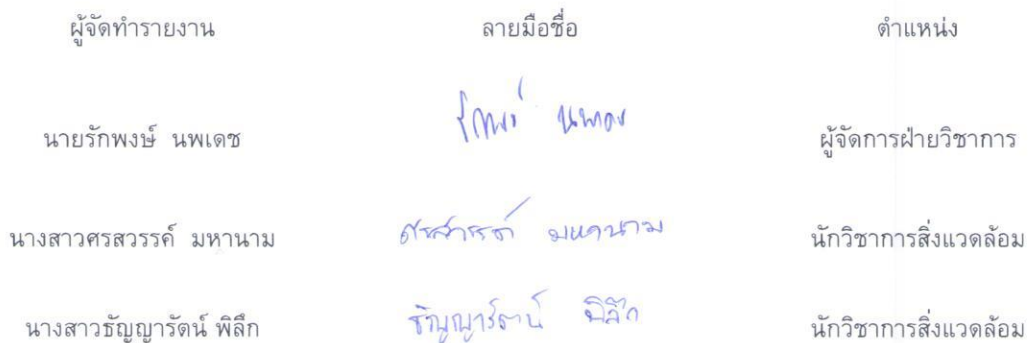 ผู้จัดทำรายงาน ลายมือชื่อ ตำแหน่ง
นายรักพงษ์ นพเดช รักพงษ์ นพเดช ผู้จัดการฝ่ายวิชาการ
นางสาวศรสวรรค์ มหานาม ศรสวรรค์ มหานาม นักวิชาการสิ่งแวดล้อม
นางสาวธัญญารัตน์ พิลึก ธัญญารัตน์ พิลึก นักวิชาการสิ่งแวดล้อม